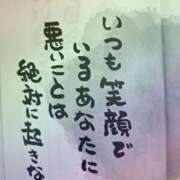 いつも笑顔で
いるあなたに
悪いことは
絶対に起きな